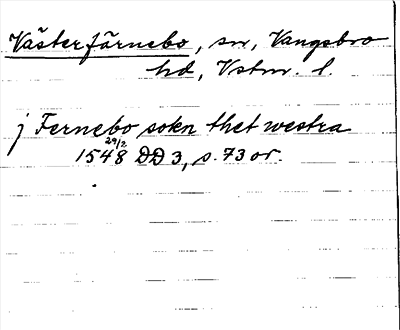 Västerfärnebo, sn, Vangsbro
hd, Vstm. l.
j Fernebo sokn thet westra
1548 29/2 DD 3, s. 73 or.